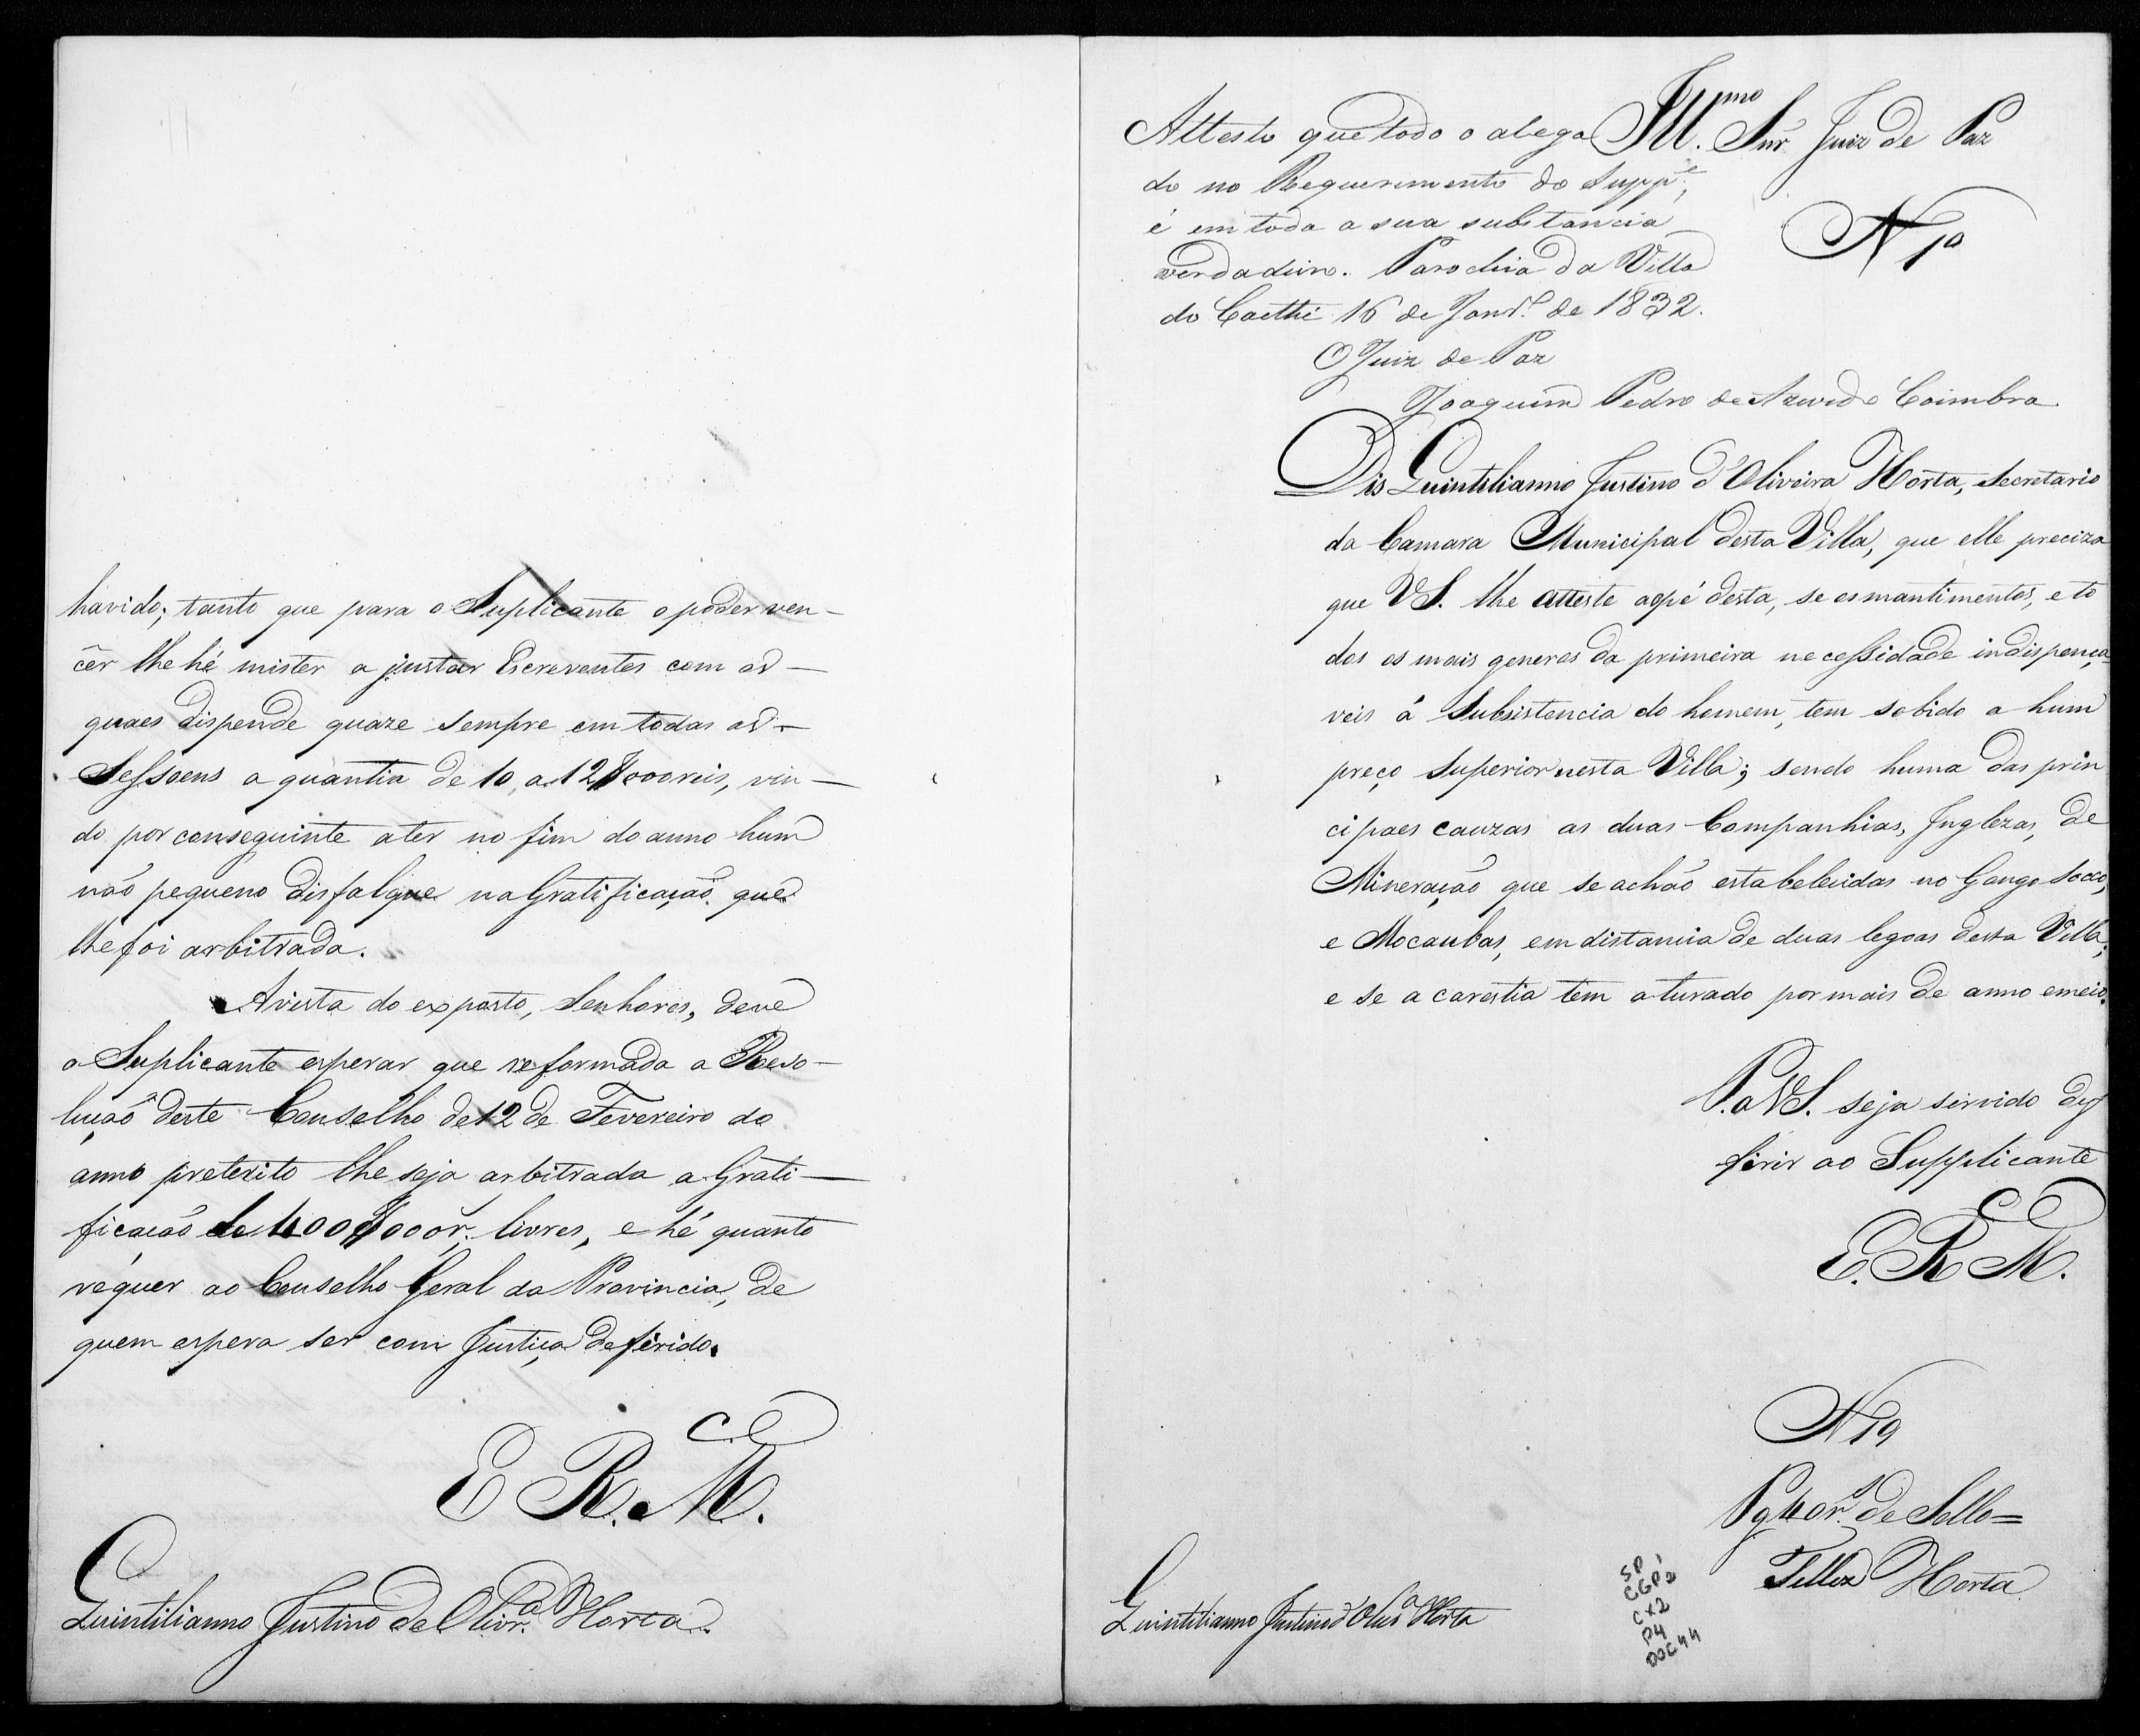 havido; tanto que para o Suplicante o poder ven-
cer lhe hé mister ajustar Escreventes com as
quaes dispende quaze sempre em todas as
Sessoens a quantia de 10, a 12$000 reis, vin-
do por conseguinte a ter no fim do anno hum
não pequeno disfalque na Gratificação que
lhe foi arbitrada.
Avista do exposto, Senhores, deve
o Suplicante esperar que reformada a Reso-
lução deste Conselho de 12 de Fevereiro do
anno preterito lhe seja arbitrada a Grati-
ficação de 400$000 r.s livres, e hé quanto
requer ao Conselho Geral da Provincia, de
quem espera ser com Justiça deferido.
E R. M.ce
Quintilianno Justino de Olivr.a Horta.
Attesto que todo o alega
do no Requerimento do Supp.e,
é em toda a sua substancia
verdadeiro. Parochia da Villa
do Caethé 16 de Janr.o de 1832.
O Juiz de Paz
Joaquim Pedro de Azevedo Coimbra
Ill.mo Snr Juiz de Paz
N 1º
Dis Quintilianno Justino d'Oliveira Horta, Secretario
da Camara Municipal desta Villa, que elle preciza
que VS. lhe atteste aopé desta, se os mantimentos, e to
dos os mais generos da primeira necessidade indispença-
veis á Subsistencia do homem, tem sobido a hum
preço Superior nesta Villa; sendo huma das prin
cipaes cauzas as duas Companhias, Inglezas, de
Mineração que se achão estabelecidas no Gongo Socco,
e Mocaubas, em distancia de duas legoas desta Villa;
e se a carestia tem aturado por mais de anno emeio.
P. a VS. seja servido def
ferir ao Supplicante
E. R. M.ce
N 19
Pg 40 r.s de Sello=
Telles Horta
Quintilianno Justino d'Oliv.a Horta
SP
CGP2
CX2
P4
DOC 44